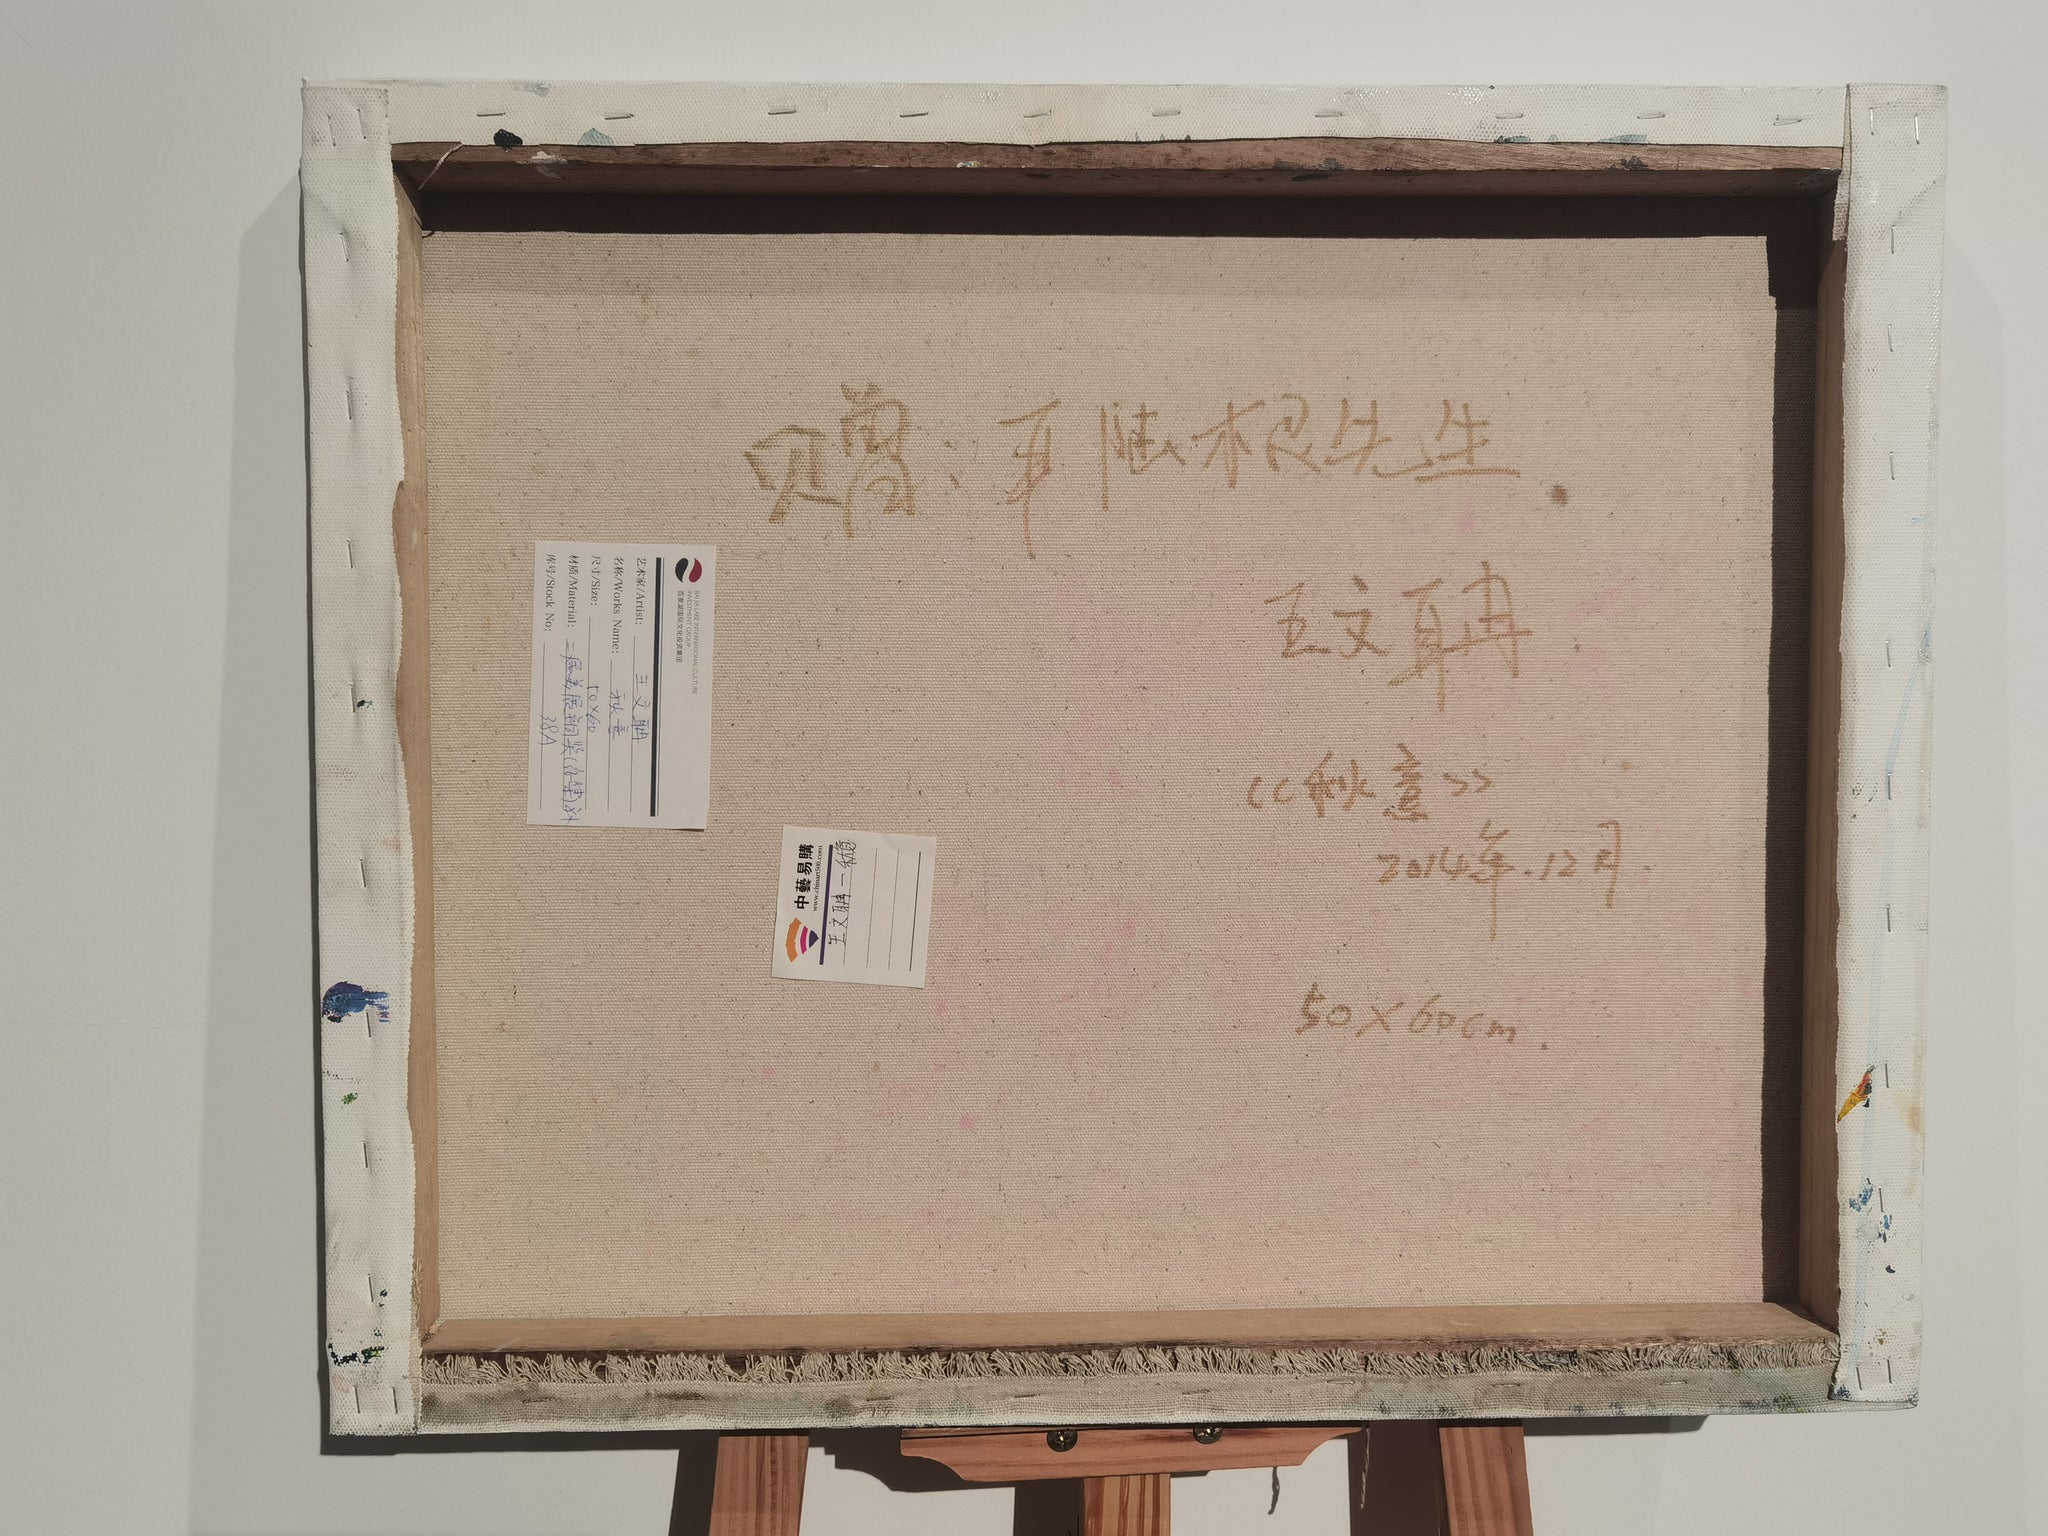 赠·耳陆根先生.
王文聃
《秋意》
2014年.12月.
50×60cm.
BAIJIA LAKE INTERNATIONAL CULTURE
INVESTMENT GROUP
百家湖国际文化投资集团
艺术家/Artist: 王文聃
名称/Works Name: 秋意
尺寸/Size: 50×60
材质/Material:
库号/Stock No: 38A
中藝易購
www.chinart500.com
王文聃一